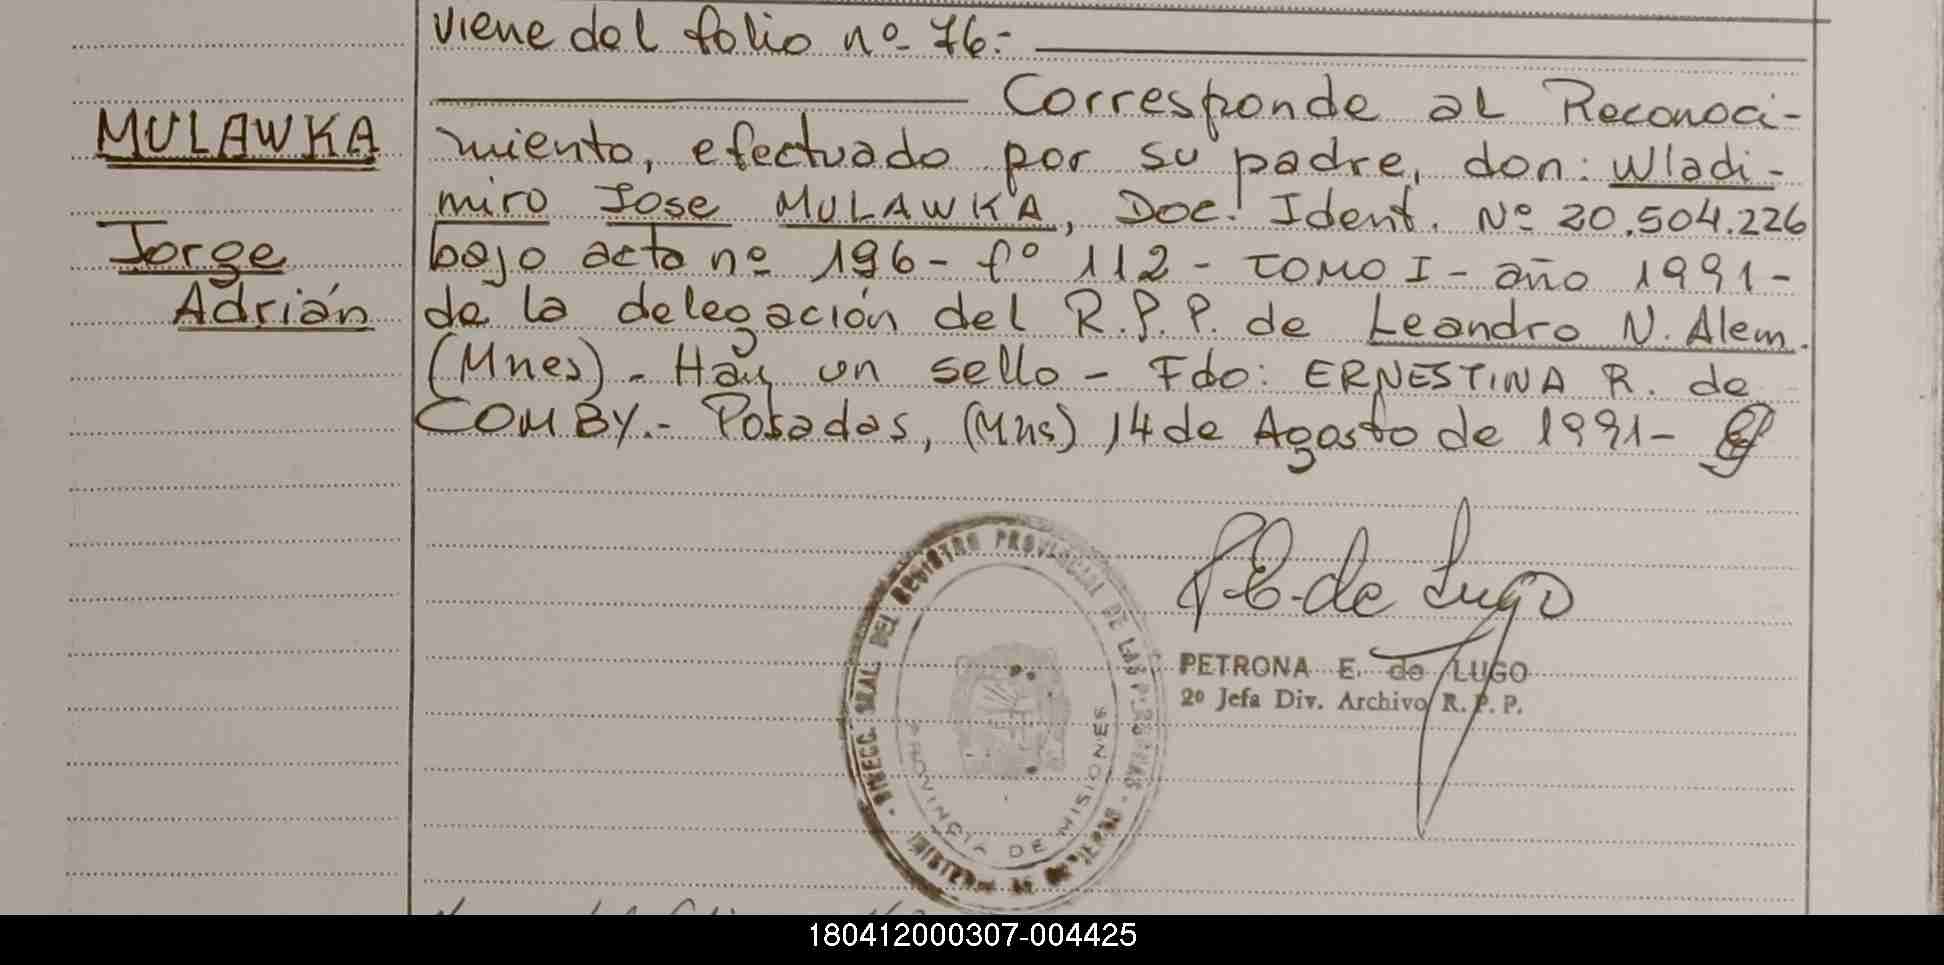 viene del folio nº 76.-
Corresponde al Reconoci-
MULAWKA
miento, efectuado por su padre, don: Wladi-
miro Jose MULAWKA, Doc. Ident. Nº 20.504.226
Jorge
bajo acta nº 196 - fº 112 - TOMO I - año 1991 -
Adrián
de la delegación del R.P.P. de Leandro N. Alem.
(Mnes) - Hay un sello - Fdo: ERNESTINA R. de
COMBY.- Posadas, (Mns) 14 de Agosto de 1991 -
P.E. de Lugo
PETRONA E. de LUGO
2º Jefa Div. Archivo R. P. P.
DIRECC. GRAL. DEL REGISTRO PROVINCIAL DE LAS PERSONAS
PROVINCIA DE MISIONES
180412000307-004425